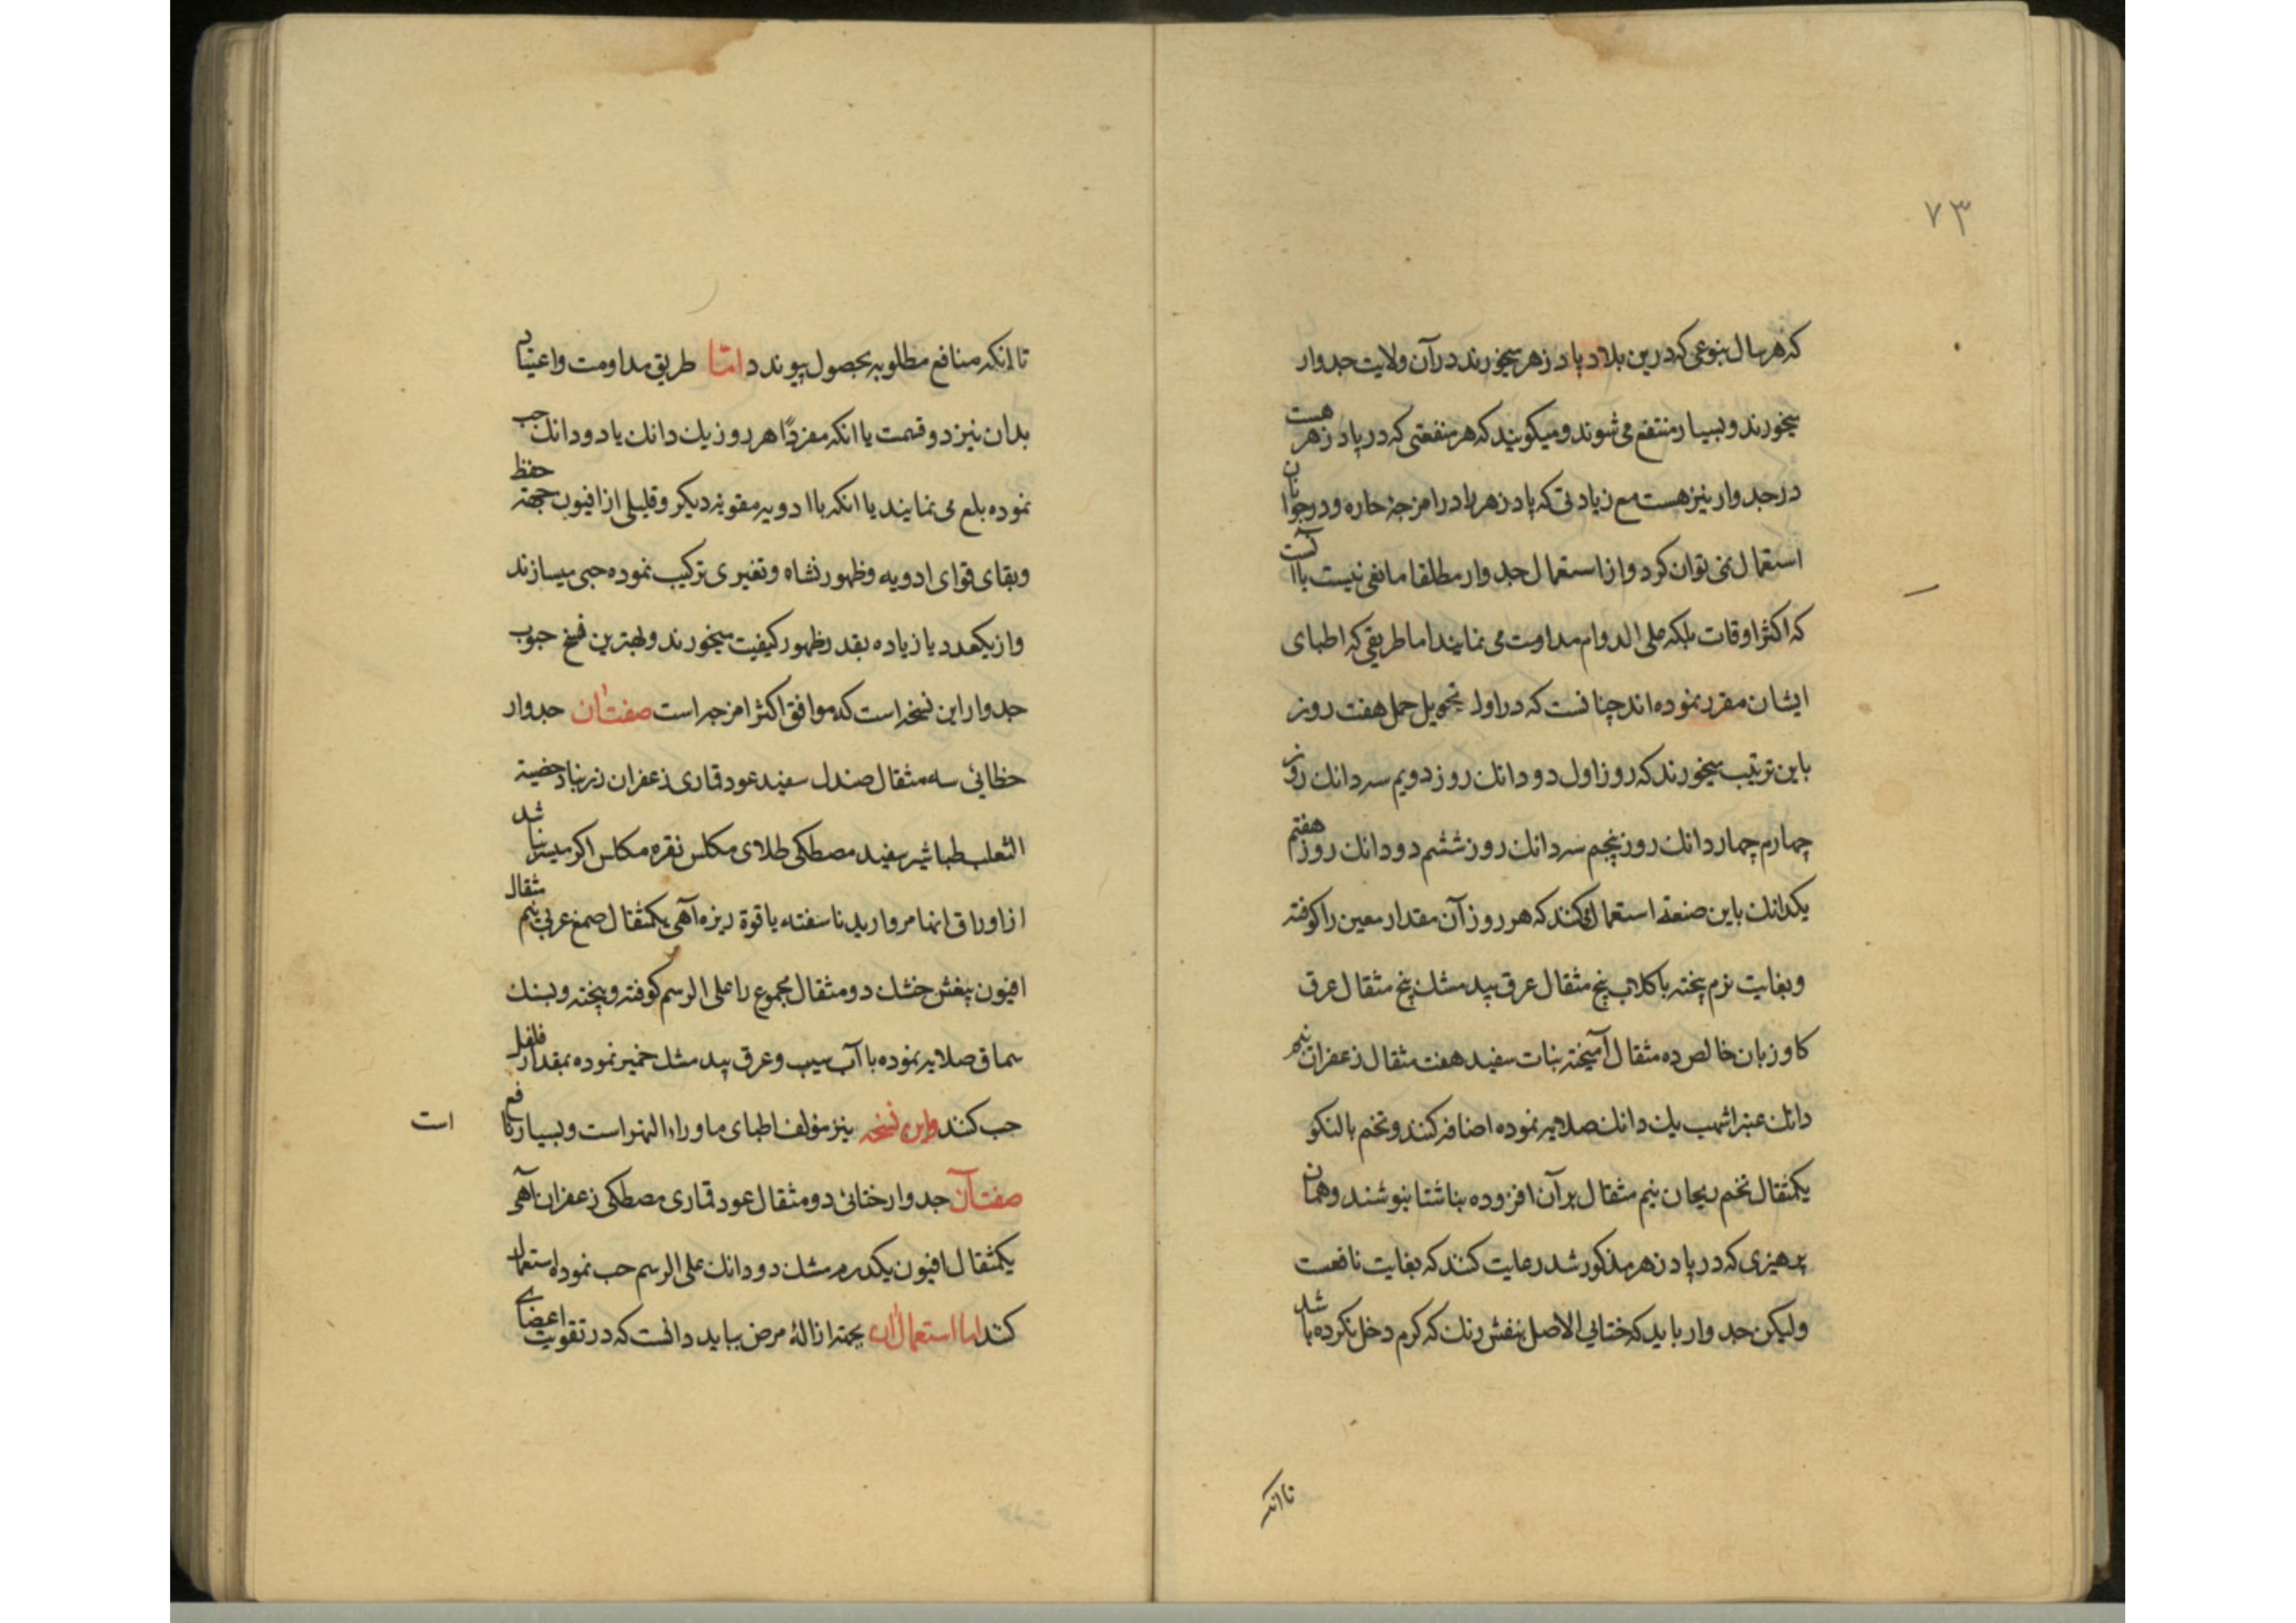 ۷۳
که هر سال بنوعی که درین بلاد پاد زهر میخورند در آن ولایت جدوار
میخورند و بسیار منتفع می شوند و میکویند که هر منفعتی که در پاد زهر هست
در جدوار نیز هست مع زیادتی که پاد زهر را در امزجهٔ حاره و در جوانان
استعمال نمی توان کرد و از استعمال جدوار مطلقا مانعی نیست با آنست
که اکثر اوقات بلکه علی الدوام مداومت می نمایند اما طریقی که اطبای
ایشان مقرر نموده اند چنانست که در اول تحویل حمل هفت روز
باین ترتیب میخورند که روز اول دو دانك روز دویم سه دانك روز
چهارم چهار دانك روز پنجم سه دانك روز ششم دو دانك روز هفتم
یکدانك باین صنعة استعمال کنند که هر روز آن مقدار معین را کوفته
و بغایت نرم پخته با کلاب پنج مثقال عرق بید مشك پنج مثقال عرق
کاو زبان خالص ده مثقال آمیخته بنات سفید هفت مثقال زعفران نیم
دانك عنبر اشهب یك دانك صلایه نموده اضافه کنند و تخم بالنکو
یکمثقال تخم ریحان نیم مثقال بر آن افزوده بناشتا بنوشند و همان
پرهیزی که در پاد زهر مذکور شد رعایت کنند که بغایت نافعست
ولیکن جدوار باید که ختایی الاصل بنفش رنك که کرم دخل نکرده باشد
تا انکه
تا انکه منافع مطلوبه بحصول پیوندد اما طریق مداومت و اعتیاد
بدان نیز دو قسمت یا انکه مفردًا هر روز یك دانك یا دو دانك حب
نموده بلع می نمایند یا انکه با ادویه مقویهٔ دیکر و قلیلی از افیون جهته حفظ
و بقای قوای ادویه و ظهور نشاه و تغیری ترکیب نموده حبی میسازند
و از یکعدد یا زیاده بقدر ظهور کیفیت میخورند و بهترین نسخ حبوب
جدوار این نسخه است که موافق اکثر امزجه است صفت آن جدوار
خطائی سه مثقال صندل سفید عود قماری زعفران زرنباد خصیة
الثعلب طباشیر سفید مصطکی طلای مکلس نقره مکلس اکر میسر نباشد
از اوراق انها مروارید ناسفته یاقوة ریزه آهی یکمثقال صمغ عربی نیم مثقال
افیون بنفش خشك دو مثقال مجموع را علی الرسم کوفته و پخته و بسنك
سماق صلایه نموده با آب سیب و عرق بید مشك خمیر نموده بمقدار فلفل
حب کنند و این نسخه نیز مؤلف اطبای ماوراء النهر است و بسیار نافع
است
صفت آن جدوار ختائی دو مثقال عود قماری مصطکی زعفران آهی
یکمثقال افیون یکدرم مشك دو دانك علی الرسم حب نموده استعمال
کنند اما استعمال آن بجهته ازالهٔ مرض بباید دانست که در تقویت اعضای